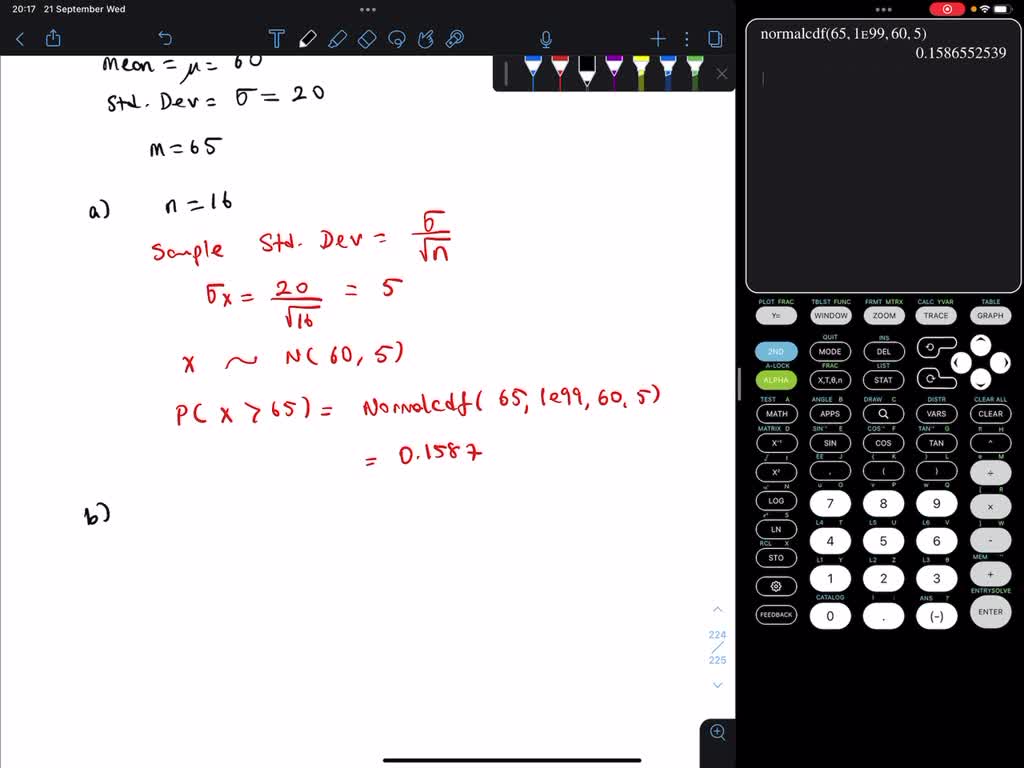 20:17 21 September Wed
normalcdf(65, 1E99, 60, 5)
0.1586552539
mean = μ = 60
Std. Dev = σ = 20
m = 65
a) n = 16
Sample Std. Dev = σ/√n
σx = 20/√16 = 5
x ~ N( 60, 5)
P( x > 65) = Normalcdf( 65, 1e99, 60, 5)
= 0.1587
b)
224
225
PLOT FRAC TBLST FUNC FRMT MTRX CALC YVAR TABLE
Y= WINDOW ZOOM TRACE GRAPH
QUIT INS
2ND MODE DEL
A-LOCK FRAC LIST
ALPHA X,T,θ,n STAT
TEST A ANGLE B DRAW C DISTR CLEAR ALL
MATH APPS VARS CLEAR
MATRIX D SIN⁻¹ E COS⁻¹ F TAN⁻¹ G π H
X⁻¹ SIN COS TAN ^
EE J { K } L e M
X² , ( ) ÷
N u O v P w Q [ R
LOG 7 8 9 ×
S L4 T L5 U L6 V ] W
LN 4 5 6 -
RCL X L1 Y L2 Z L3 θ MEM "
STO 1 2 3 +
CATALOG i : ANS ? ENTRYSOLVE
FEEDBACK 0 . (-) ENTER